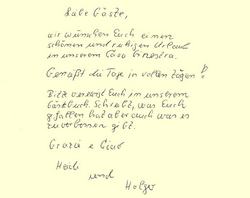 Liebe Gäste,
wir wünschen Euch einen
schönen und ruhigen Urlaub
in unserem Casa
Genießt die Tage in vollen Zügen!
Bitte verewigt Euch in unserem
Gästebuch. Schreibt, was Euch
gefallen hat aber auch was es
zu verbessern gibt.
Grazie e Ciao
und
Holger